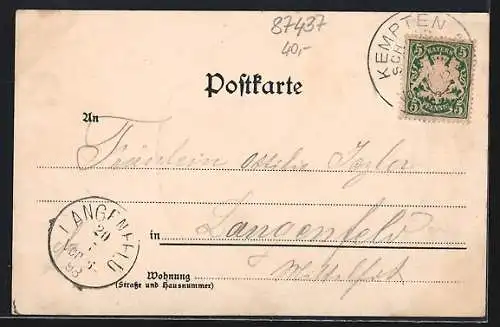 87437
40,-
KEMPTEN
SCH
BAYERN
5 5
5 PFENNIG 5
Postkarte
An
Fräulein Ottilie
LANGENFELD
20
Vor
98
in Langenfeld
Mittelfr
Wohnung
(Straße und Hausnummer)